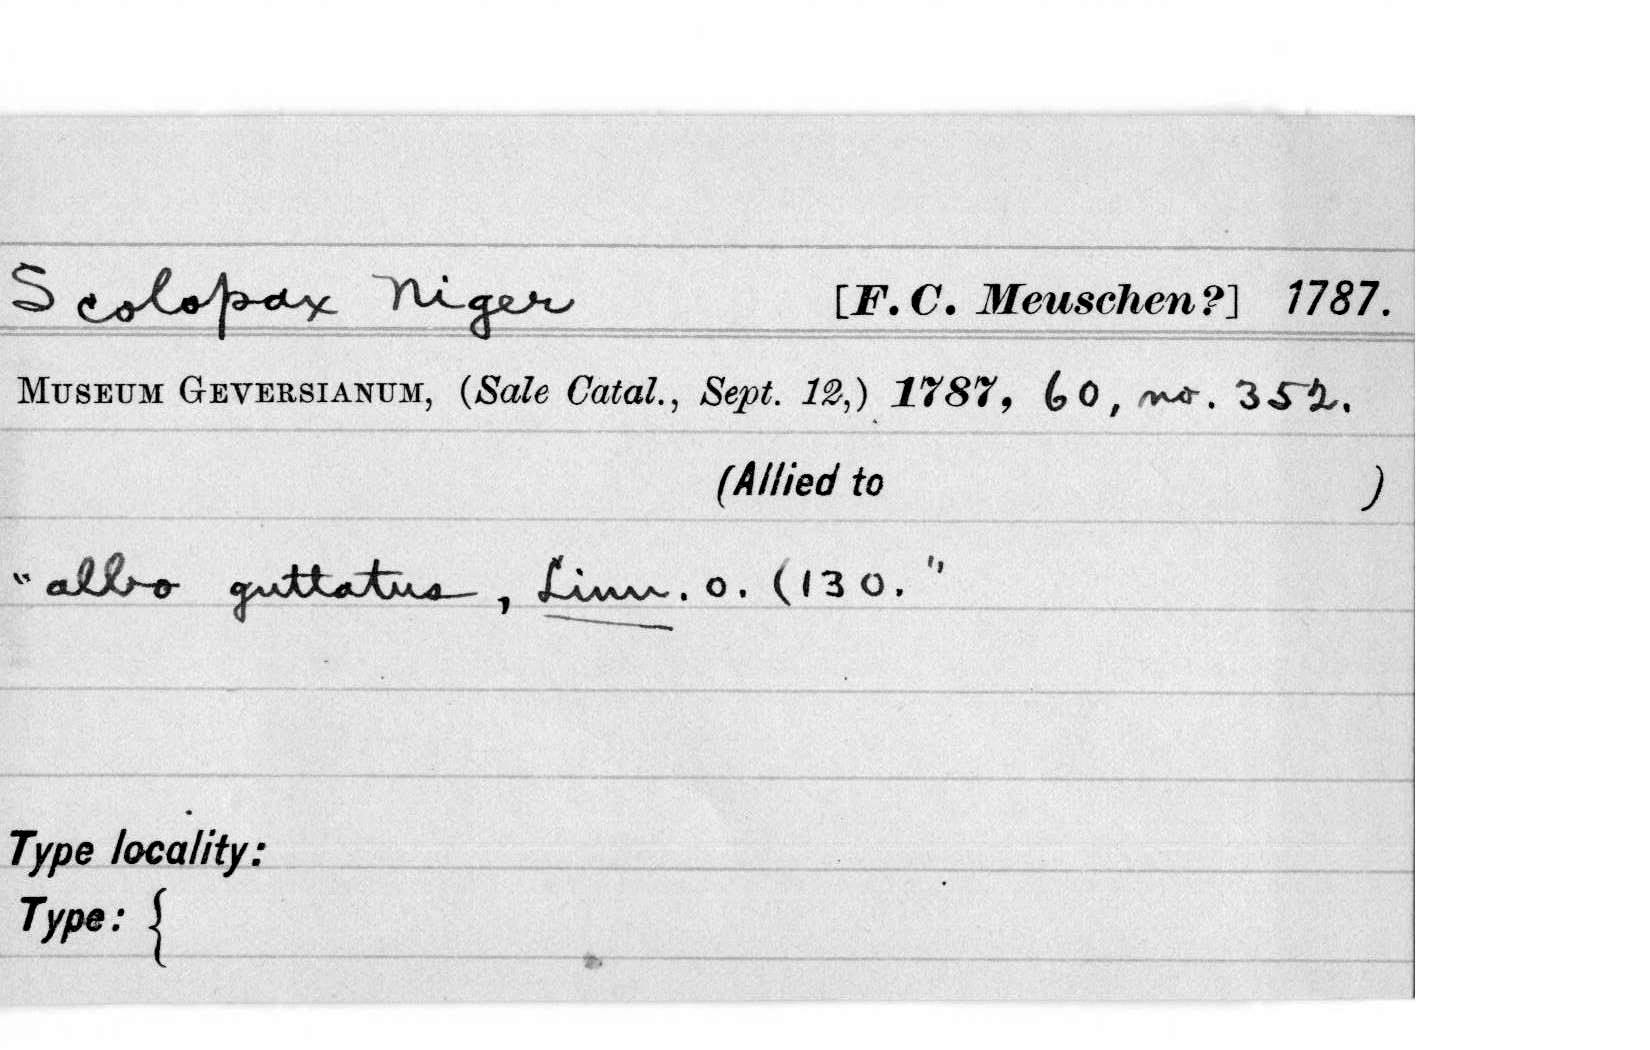 Scolopax Niger [F. C. Meuschen?] 1787.
Museum Geversianum, (Sale Catal., Sept. 12,) 1787, 60, no. 352.
(Allied to )
"albo guttatus, Linn. o. (130."
Type locality:
Type: {